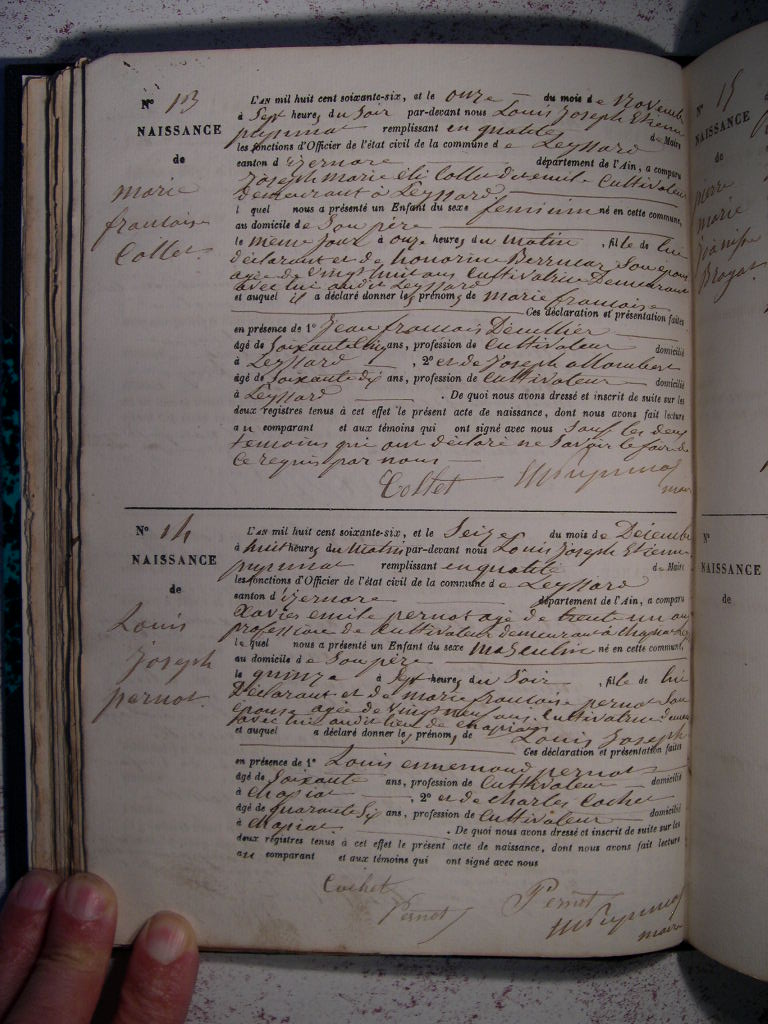 N° 13
NAISSANCE
de
marie
francoise
Collet
L'AN mil huit cent soixante-six, et le onze du mois de Novembre
à Sept heures du Soir par-devant nous Louis Joseph Etienne
remplissant en qualité de Maire
les fonctions d'Officier de l'état civil de la commune de Leyssard
canton d'izernore département de l'Ain, a comparu
Joseph marie Collet Cultivateur
demeurant à Leyssard
lequel nous a présenté un Enfant du sexe feminin né en cette commune,
au domicile de Son père
le meme jour à onze heures du matin, fille de lui
déclarant et de honorine Son epouse
agée de vingt huit ans Cultivatrice Demeurant
avec lui audit Leyssard
et auquel il a déclaré donner les prénoms de marie francoise
Ces déclaration et présentation faites
en présence de 1° Jean francois
âgé de Soixante cinq ans, profession de Cultivateur domicilié
à Leyssard, 2° et de Joseph
âgé de Soixante dix ans, profession de Cultivateur domicilié
à Leyssard. De quoi nous avons dressé et inscrit de suite sur les
deux registres tenus à cet effet le présent acte de naissance, dont nous avons fait lecture
au comparant et aux témoins qui ont signé avec nous Sauf les deux
temoins qui ont déclaré ne Savoir le faire de
ce requis par nous
Collet
maire
N° 14
NAISSANCE
de
Louis
Joseph
pernot
L'AN mil huit cent soixante-six, et le Seize du mois de Décembre
à huit heures du Matin par-devant nous Louis Joseph Etienne
remplissant en qualité de Maire
les fonctions d'Officier de l'état civil de la commune de Leyssard
canton d'izernore département de l'Ain, a comparu
Xavier emile pernot agé de trente un ans
profession de Cultivateur demeurant à
lequel nous a présenté un Enfant du sexe Masculin né en cette commune,
au domicile de Son père
le quinze à Sept heures du Soir, fils de lui
Déclarant et de marie francoise pernot Son
epouse agée de vingt neuf ans Cultivatrice
avec lui audit lieu de
et auquel a déclaré donner les prénoms de Louis Joseph
Ces déclaration et présentation faites
en présence de 1° Louis ennemond pernot
âgé de Soixante ans, profession de Cultivateur domicilié
à chapiat, 2° et de Charles Cochet
âgé de quarante Six ans, profession de Cultivateur domicilié
à chapiat. De quoi nous avons dressé et inscrit de suite sur les
deux registres tenus à cet effet le présent acte de naissance, dont nous avons fait lecture
au comparant et aux témoins qui ont signé avec nous
Cochet
Pernot Pernot
maire
N° 15
NAISSANCE
de
pierre
marie
N°
NAISSANCE
de